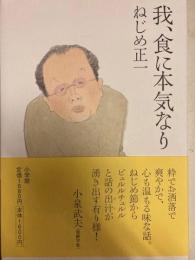 我、食に本気なり
ねじめ正一
粋でお洒落で
爽やかで、
心も温もる味な話。
ねじめ節から
ピュルルチュルル
と話の出汁が
湧き出す有り様!
小泉武夫
小学館
定価1680円(本体1600円)